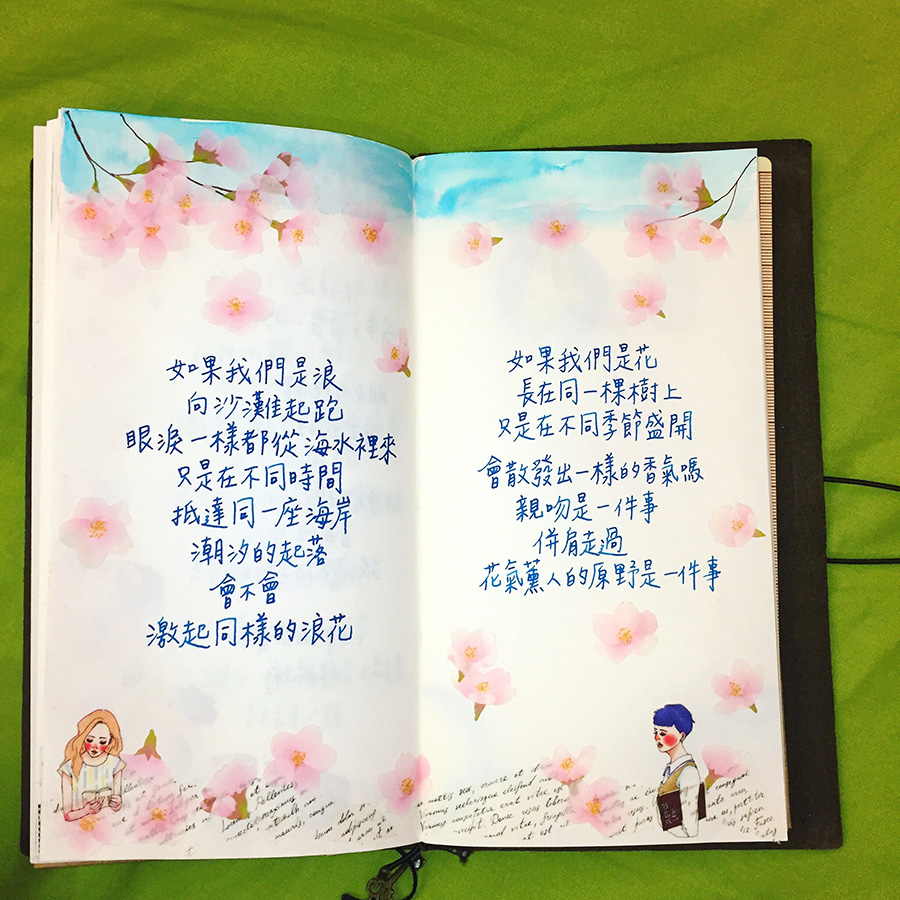 如果我們是浪
向沙灘起跑
眼淚一樣都從海水裡來
只是在不同時間
抵達同一座海岸
潮汐的起落
會不會
激起同樣的浪花
如果我們是花
長在同一棵樹上
只是在不同季節盛開
會散發出一樣的香氣嗎
親吻是一件事
併肩走過
花氣薰人的原野是一件事